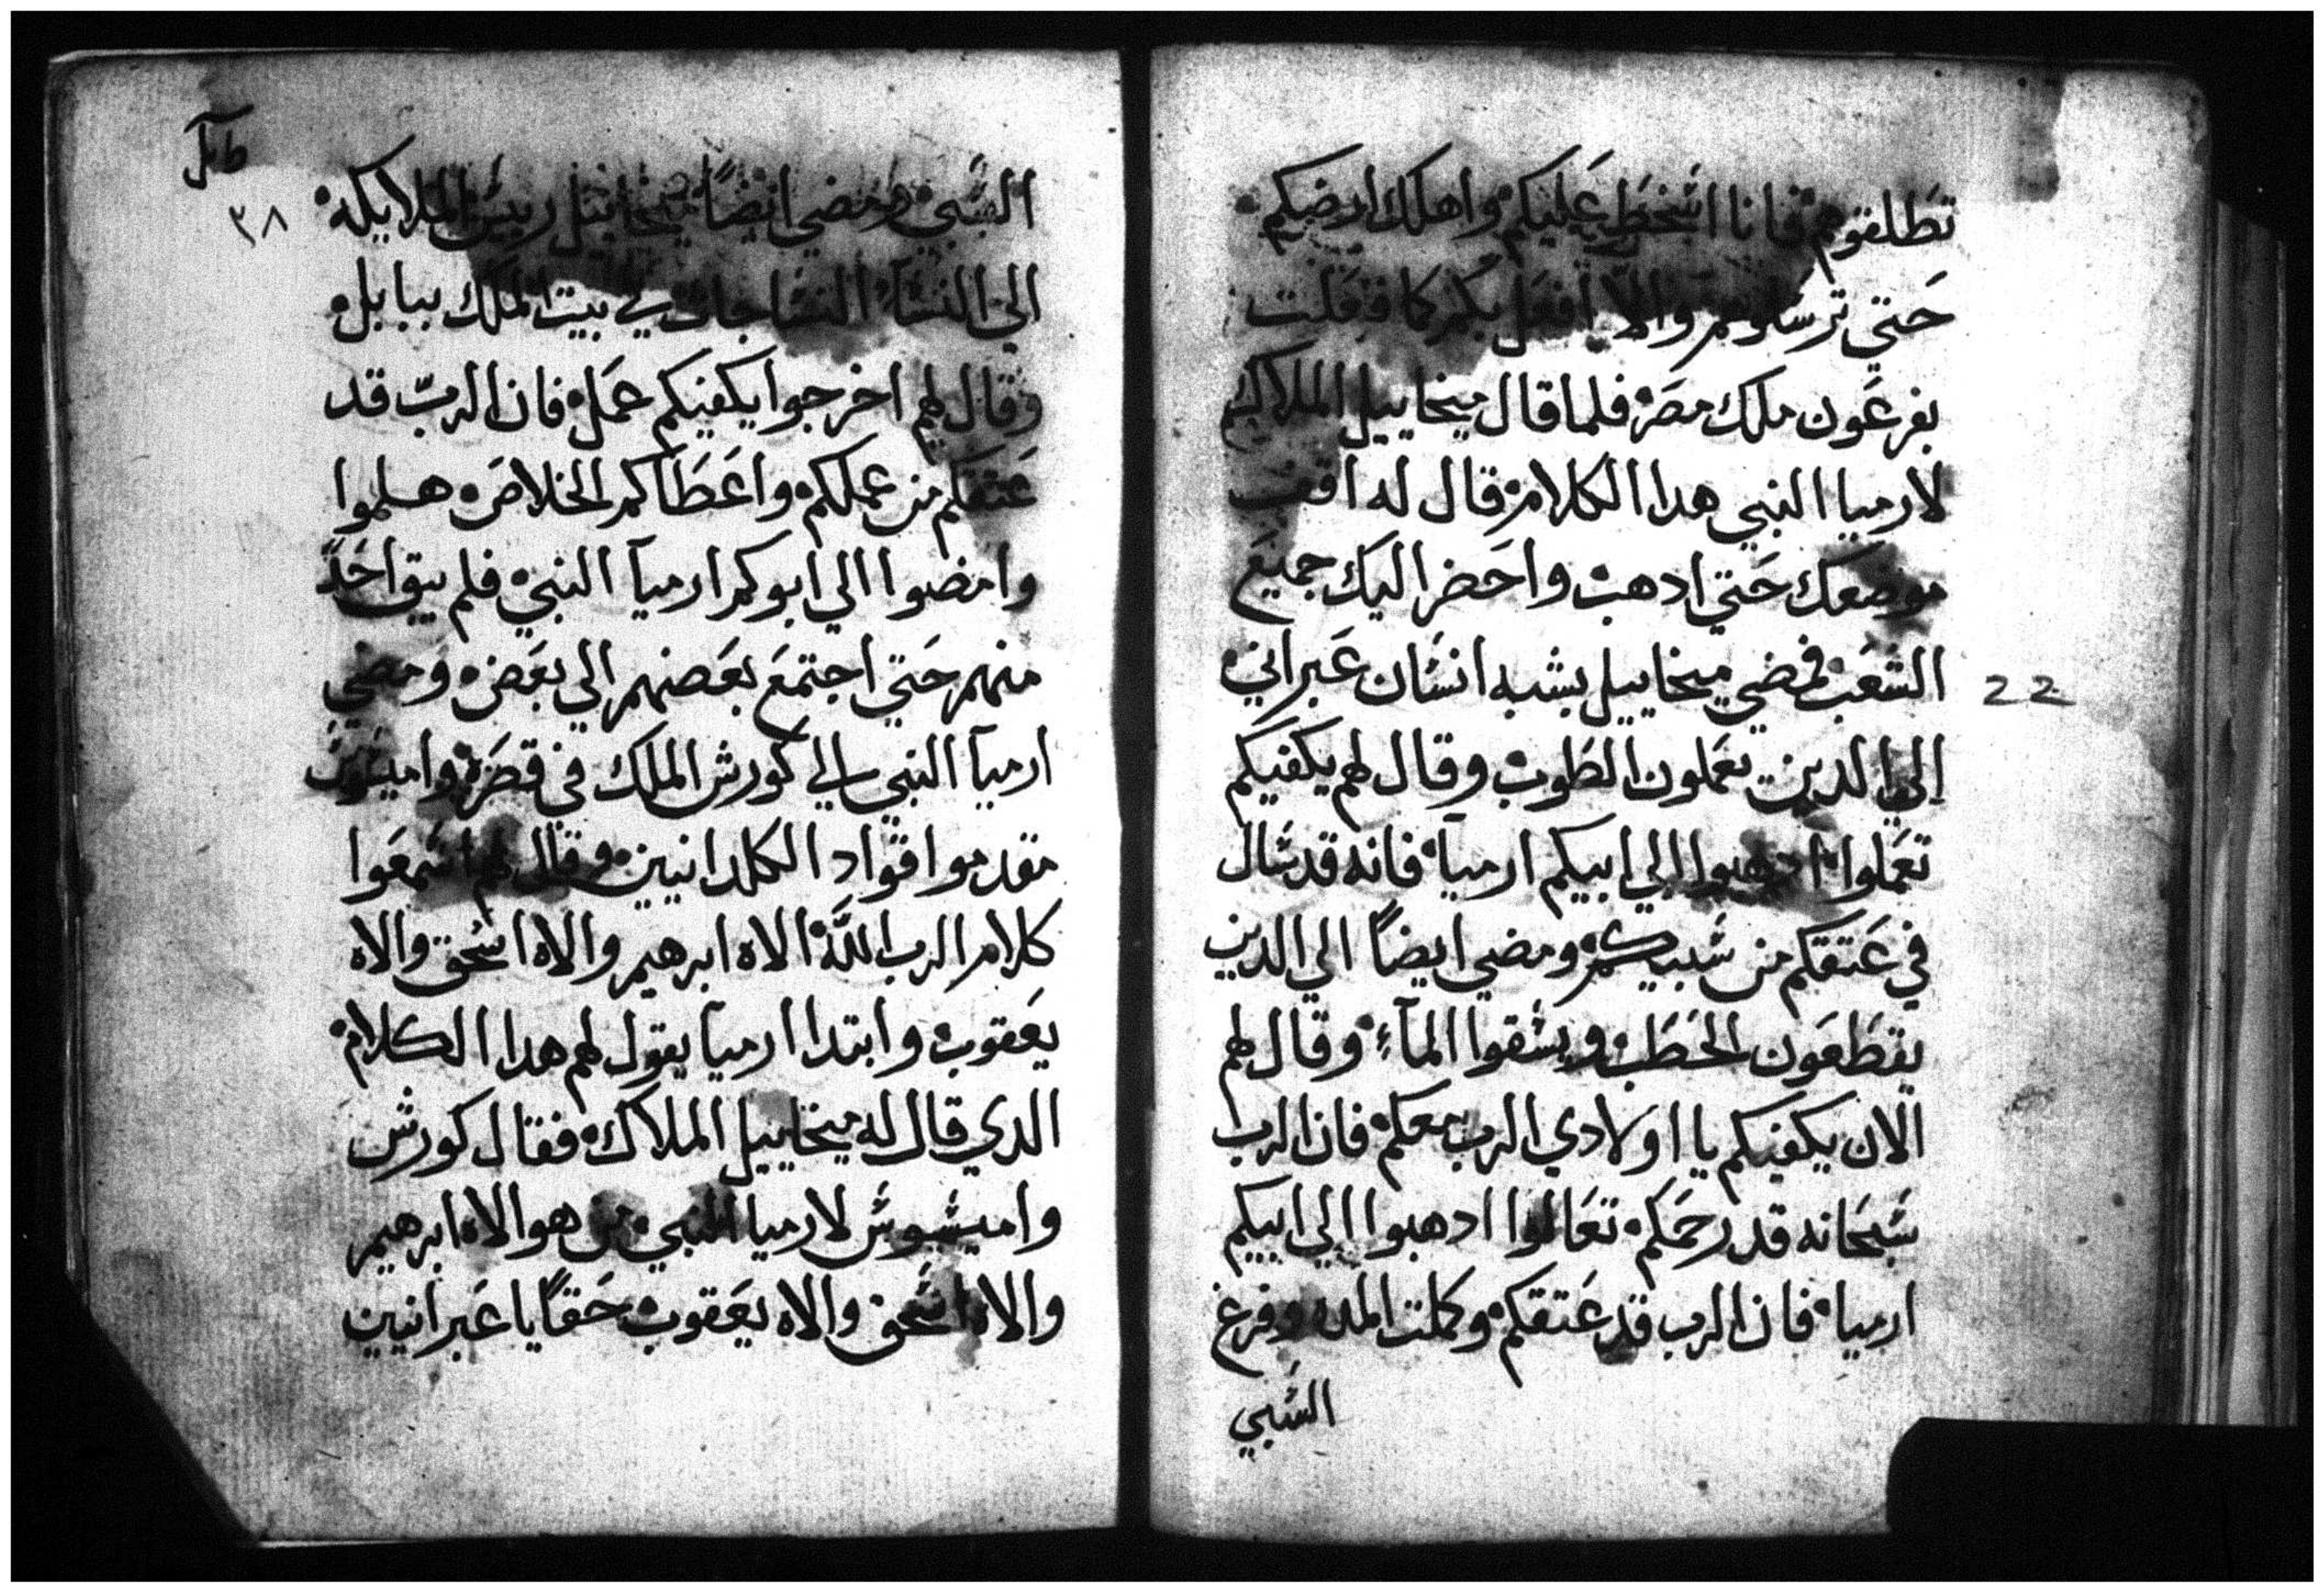 تطلقوهم فانا اسخط عليكم واهلك ارضكم
حتي ترسلوهم والا افعل بكم كما فعلت
بفرعون ملك مصر فلما قال ميخاييل الملاك
لارميا النبي هدا الكلام قال له اقف
موضعك حتي ادهب واحضر اليك جميع
الشعب فمضي ميخاييل بشبه انسان عبراني
22
الي الدين يعملون الطوب وقال لهم يكفيكم
تعملوا ادهبوا الي ابيكم ارميا فانه قد سال
في عتقكم من سبيكم ومضي ايضاً الي الدين
يقطعون الحطب ويسقوا المآء وقال لهم
الان يكفيكم يا اولادي الرب معكم فان الرب
سبحانه قد رحمكم تعالوا ادهبوا الي ابيكم
ارميا فان الرب قد عتقكم وكملت المده وفرغ
السبي
٣٨
السبي ومضي ايضاً ميخاييل رييس الملايكه
الي النسآ النساجات في بيت الملك ببابل
وقال لهم اخرجوا يكفيكم عمل فان الربّ قد
عتقكم من عملكم واعطاكم الخلاص هلموا
وامضوا الي ابوكم ارميآ النبي فلم يبق احدً
منهم حتي اجتمع بعضهم الي بعض ومضي
ارميآ النبي الي كورش الملك في قصره واميسوس
مقدموا قواد الكلدانيين وقال لهم اسمعوا
كلام الرب اللَّه الاه ابرهيم والاه اسحق والاه
يعقوب وابتدا ارميا يقول لهم هدا الكلام
الدي قال له ميخاييل الملاك فقال كورش
واميسوس لارميا النبي من هو الاه ابرهيم
والاه اسحق والاه يعقوب حقاً يا عبرانيين